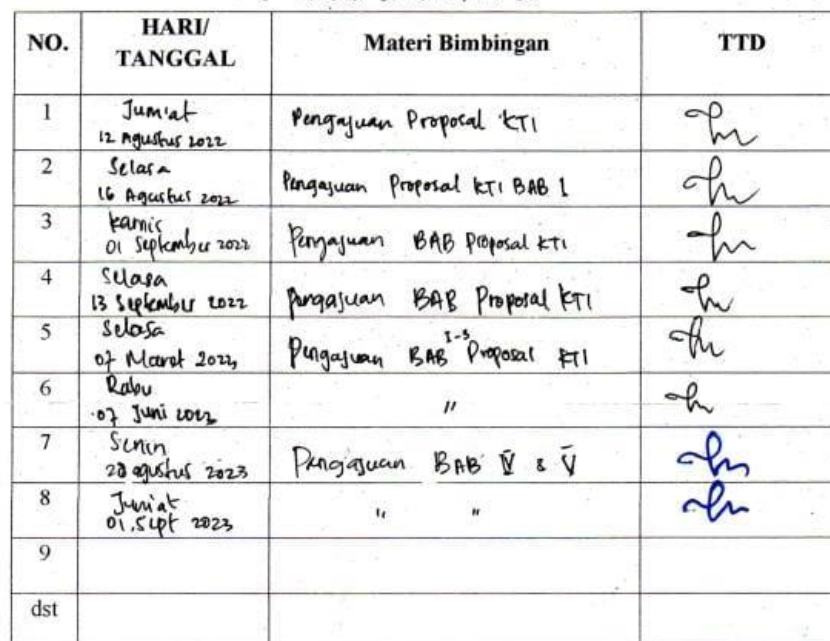 NO.
HARI/
TANGGAL
Materi Bimbingan
TTD
1
Jum'at
12 Agustus 2022
Pengajuan Proposal KTI
2
Selasa
16 Agustus 2022
Pengajuan Proposal KTI BAB I
3
Kamis
01 September 2022
Pengajuan BAB Proposal KTI
4
Selasa
13 September 2022
Pengajuan BAB Proposal KTI
5
Selasa
07 Maret 2023
Pengajuan BAB I-3 Proposal KTI
6
Rabu
07 Juni 2023
"
7
Senin
agustus 2023
Pengajuan BAB IV & V
8
Jum'at
01. Sept 2023
" "
9
dst